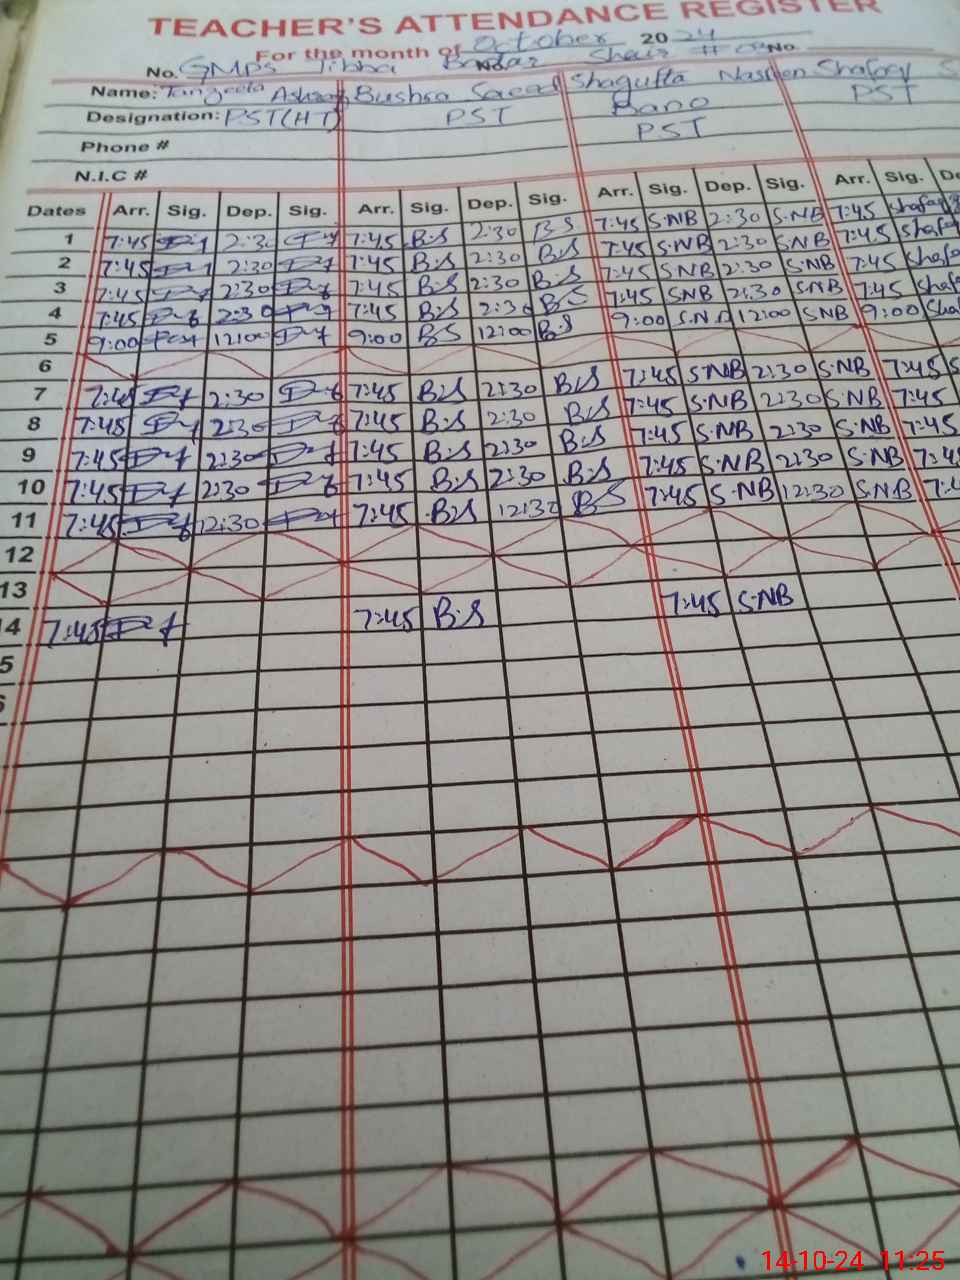 TEACHER'S ATTENDANCE REGISTER
For the month of October 2024
No. GMPS Tibba Bandar Sher # No.
Name: Tanzeela Ashraf Bushra Saeed Shagufta Nasreen Shafaq
Bano
Designation: PST(HT) PST PST PST
Phone #
N.I.C #
Dates Arr. Sig. Dep. Sig. Arr. Sig. Dep. Sig. Arr. Sig. Dep. Sig. Arr. Sig.
1 7:45 2:30 7:45 B.S 2:30 B S 7:45 S.NB 2:30 S.NB 7:45 Shafaq
2 7:45 2:30 7:45 B.S 2:30 B.S 7:45 S.NB 2:30 S.NB 7:45
3 7:45 2:30 7:45 B.S 2:30 B.S 7:45 S.NB 2:30 S.NB 7:45
4 7:45 2:30 7:45 B.S 2:30 B.S 7:45 SNB 2:30 S.NB 7:45
5 9:00 12:00 9:00 BS 12:00 B.S 9:00 S.NB 12:00 SNB 9:00
6
7 7:45 2:30 7:45 B.S 2:30 B.S 7:45 S.NB 2:30 S.NB 7:45
8 7:45 2:30 7:45 B.S 2:30 B.S 7:45 S.NB 2:30 S.NB 7:45
9 7:45 2:30 7:45 B.S 2:30 B.S 7:45 S.NB 2:30 S.NB 7:45
10 7:45 2:30 7:45 B.S 2:30 B.S 7:45 S.NB 2:30 S.NB
11 7:45 12:30 7:45 B.S 12:30 BS 7:45 S.NB 12:30 S.NB
12
13
14 7:45 7:45 B.S 7:45 S.NB
5
6
14-10-24 11:25